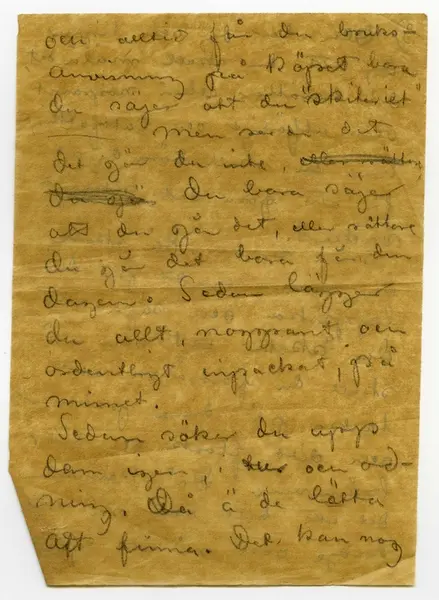 och alltid får du bruks-
anvisning på köpet bara
du säjer att du "skiteriet"
men ser du det
det gör du inte, eller rättare
du sjä Du bara säjer
att du gör det, eller rättare
du gör det bara för den
dagen. Sedan lägger
du allt, noggsamt och
ordentligt inpackat, på
minnet.
Sedan söker du upp
dam igen, i och ord-
ning. Då ä de lätta
att finna. Det kan nog